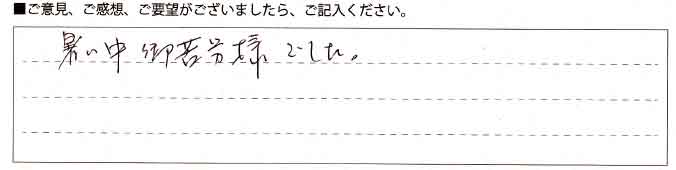 ■ご意見、ご感想、ご要望がございましたら、ご記入ください。
暑い中 御苦労様でした。